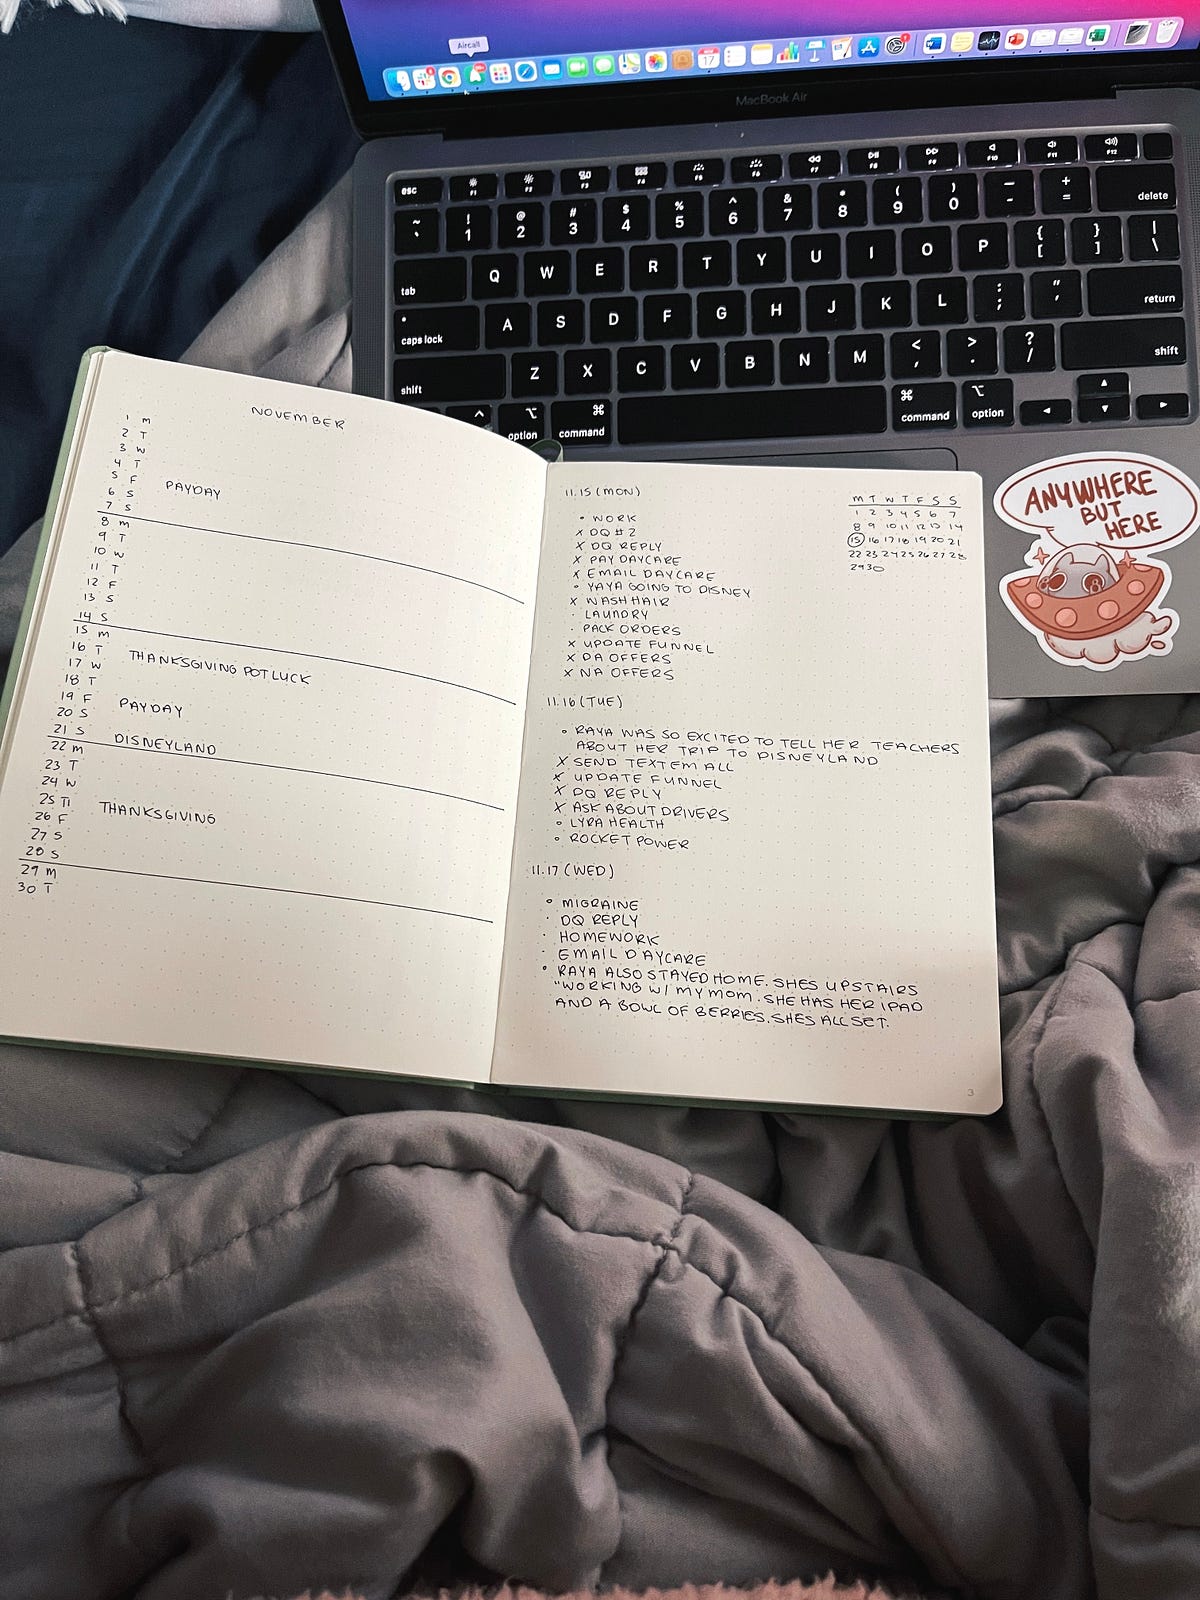 Aircall
NOV
17
MacBook Air
esc
F1
F2
F3
F4
F5
F6
F7
F8
F9
F10
F11
F12
~ `
! 1
@ 2
# 3
$ 4
% 5
^ 6
& 7
* 8
( 9
) 0
— -
+ =
delete
tab
Q W E R T Y U I O P
{ [
} ]
| \
caps lock
A S D F G H J K L
: ;
" '
return
shift
Z X C V B N M
< ,
> .
? /
shift
^
⌥ option
⌘ command
⌘ command
⌥ option
ANYWHERE
BUT
HERE
NOVEMBER
1 M
2 T
3 W
4 T
5 F PAYDAY
6 S
7 S
8 M
9 T
10 W
11 T
12 F
13 S
14 S
15 M
16 T THANKSGIVING POTLUCK
17 W
18 T
19 F PAYDAY
20 S
21 S DISNEYLAND
22 M
23 T
24 W
25 T THANKSGIVING
26 F
27 S
28 S
29 M
30 T
11.15 (MON)
• WORK
X DQ #2
X DQ REPLY
X PAY DAYCARE
X EMAIL DAYCARE
◦ YAYA GOING TO DISNEY
X WASH HAIR
LAUNDRY
· PACK ORDERS
X UPDATE FUNNEL
X DA OFFERS
X NA OFFERS
M T W T F S S
1 2 3 4 5 6 7
8 9 10 11 12 13 14
15 16 17 18 19 20 21
22 23 24 25 26 27 28
29 30
11.16 (TUE)
◦ RAYA WAS SO EXCITED TO TELL HER TEACHERS
ABOUT HER TRIP TO DISNEYLAND
X SEND TEXTEM ALL
X UPDATE FUNNEL
X DQ REPLY
X ASK ABOUT DRIVERS
◦ LYRA HEALTH
◦ ROCKET POWER
11.17 (WED)
◦ MIGRAINE
· DQ REPLY
· HOMEWORK
· EMAIL DAYCARE
◦ RAYA ALSO STAYED HOME. SHES UPSTAIRS
"WORKING W/ MY MOM. SHE HAS HER IPAD
AND A BOWL OF BERRIES. SHES ALL SET.
3